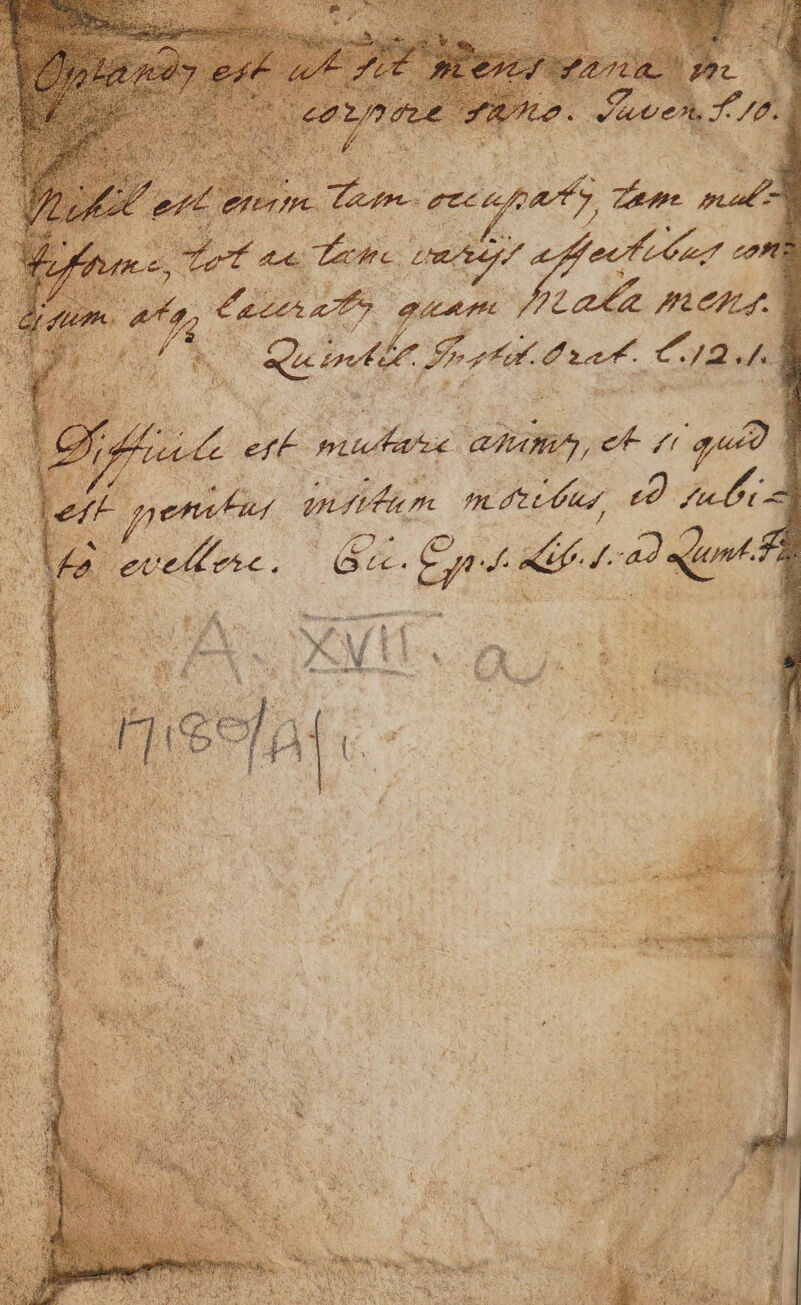 Optandꝫ est ut sit mens sana in
corpore sano. Juven. S. 10.
Nihil est enim tam occupatꝫ, tam mul=
tiforme, tot ac tam varijs affectibus con=
cisum atqꝫ laceratꝫ quam Mala mens.
Quintil. Instit. Orat. l. 12. 1.
Difficile est mutare animꝫ, et si quid
est penitus insitum moribus, id subi=
tò evellere. Cic. Ep. 1. Lib. 1. ad Quint. F
A. XVII. a
17180/A/1.